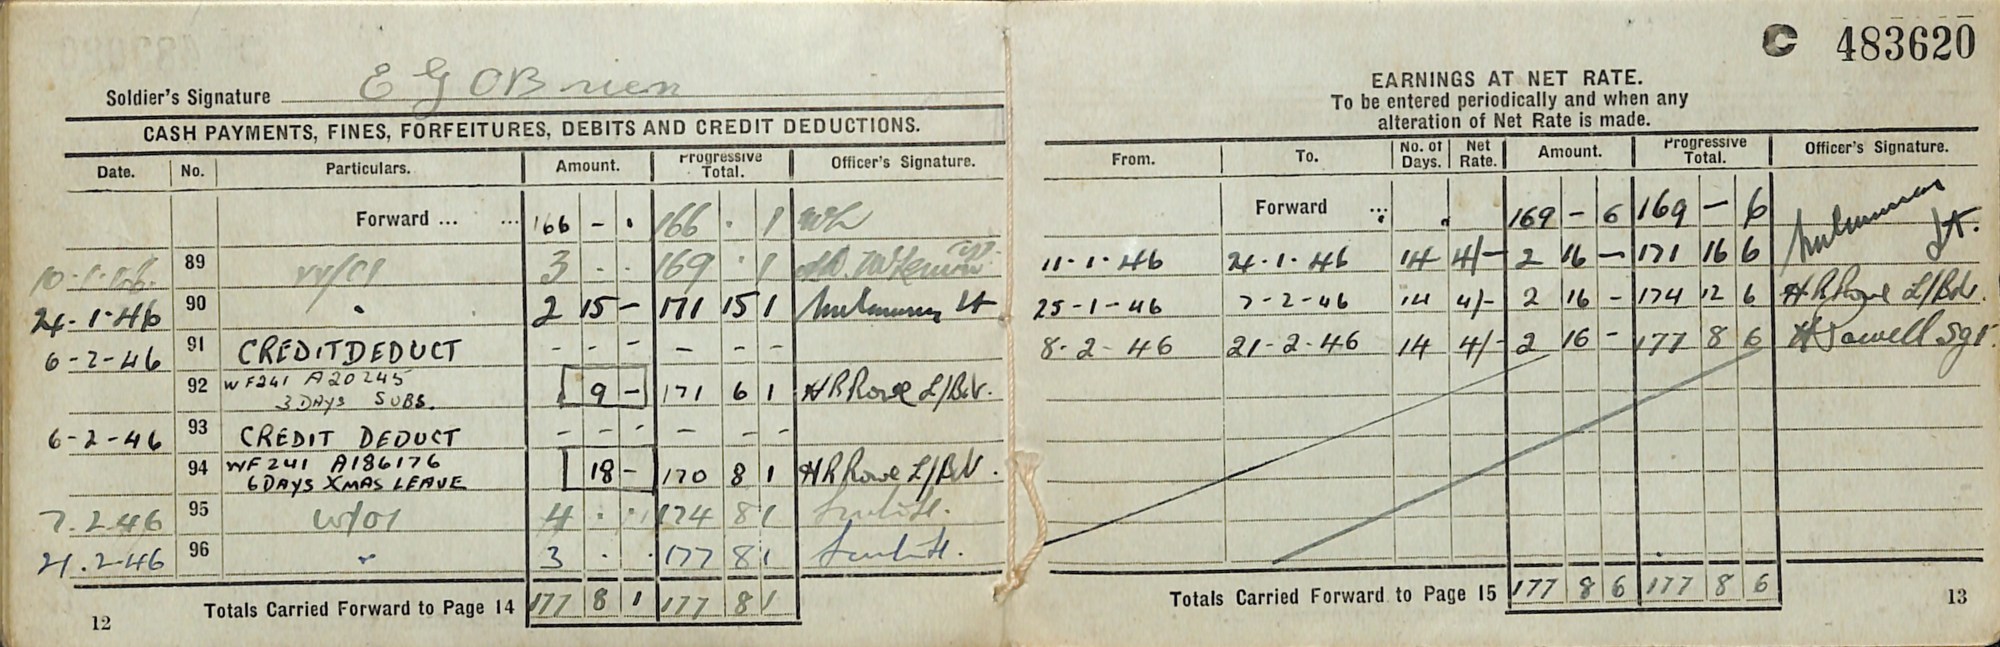 Soldier's Signature E G OBrien
CASH PAYMENTS, FINES, FORFEITURES, DEBITS AND CREDIT DEDUCTIONS.
Date. No. Particulars. Amount. Progressive Total. Officer's Signature.
Forward ... ... 166 - . 166 . 1
10.1.46 89 3 . . 169 . 1
24.1.46 90 " 2 15 - 171 15 1
6-2-46 91 CREDIT DEDUCT - - - - - -
92 WF241 A20245 9 - 171 6 1 H R Rowe L/Bdr.
3 DAYS SUBS.
6-2-46 93 CREDIT DEDUCT - - - - - -
94 WF241 A186176 18 - 170 8 1 H R Rowe L/Bdr.
6 DAYS XMAS LEAVE
7.2.46 95 4 . . 174 8 1
21.2.46 96 " 3 . . 177 8 1
Totals Carried Forward to Page 14 177 8 1 177 8 1
12
C 483620
EARNINGS AT NET RATE.
To be entered periodically and when any
alteration of Net Rate is made.
From. To. No. of Days. Net Rate. Amount. Progressive Total. Officer's Signature.
Forward ... 169 - 6 169 - 6
11.1.46 24.1.46 14 4/- 2 16 - 171 16 6 Lt.
25-1-46 7-2-46 14 4/- 2 16 - 174 12 6 H R Rowe L/Bdr.
8.2.46 21-2-46 14 4/- 2 16 - 177 8 6 Sgt.
Totals Carried Forward to Page 15 177 8 6 177 8 6
13